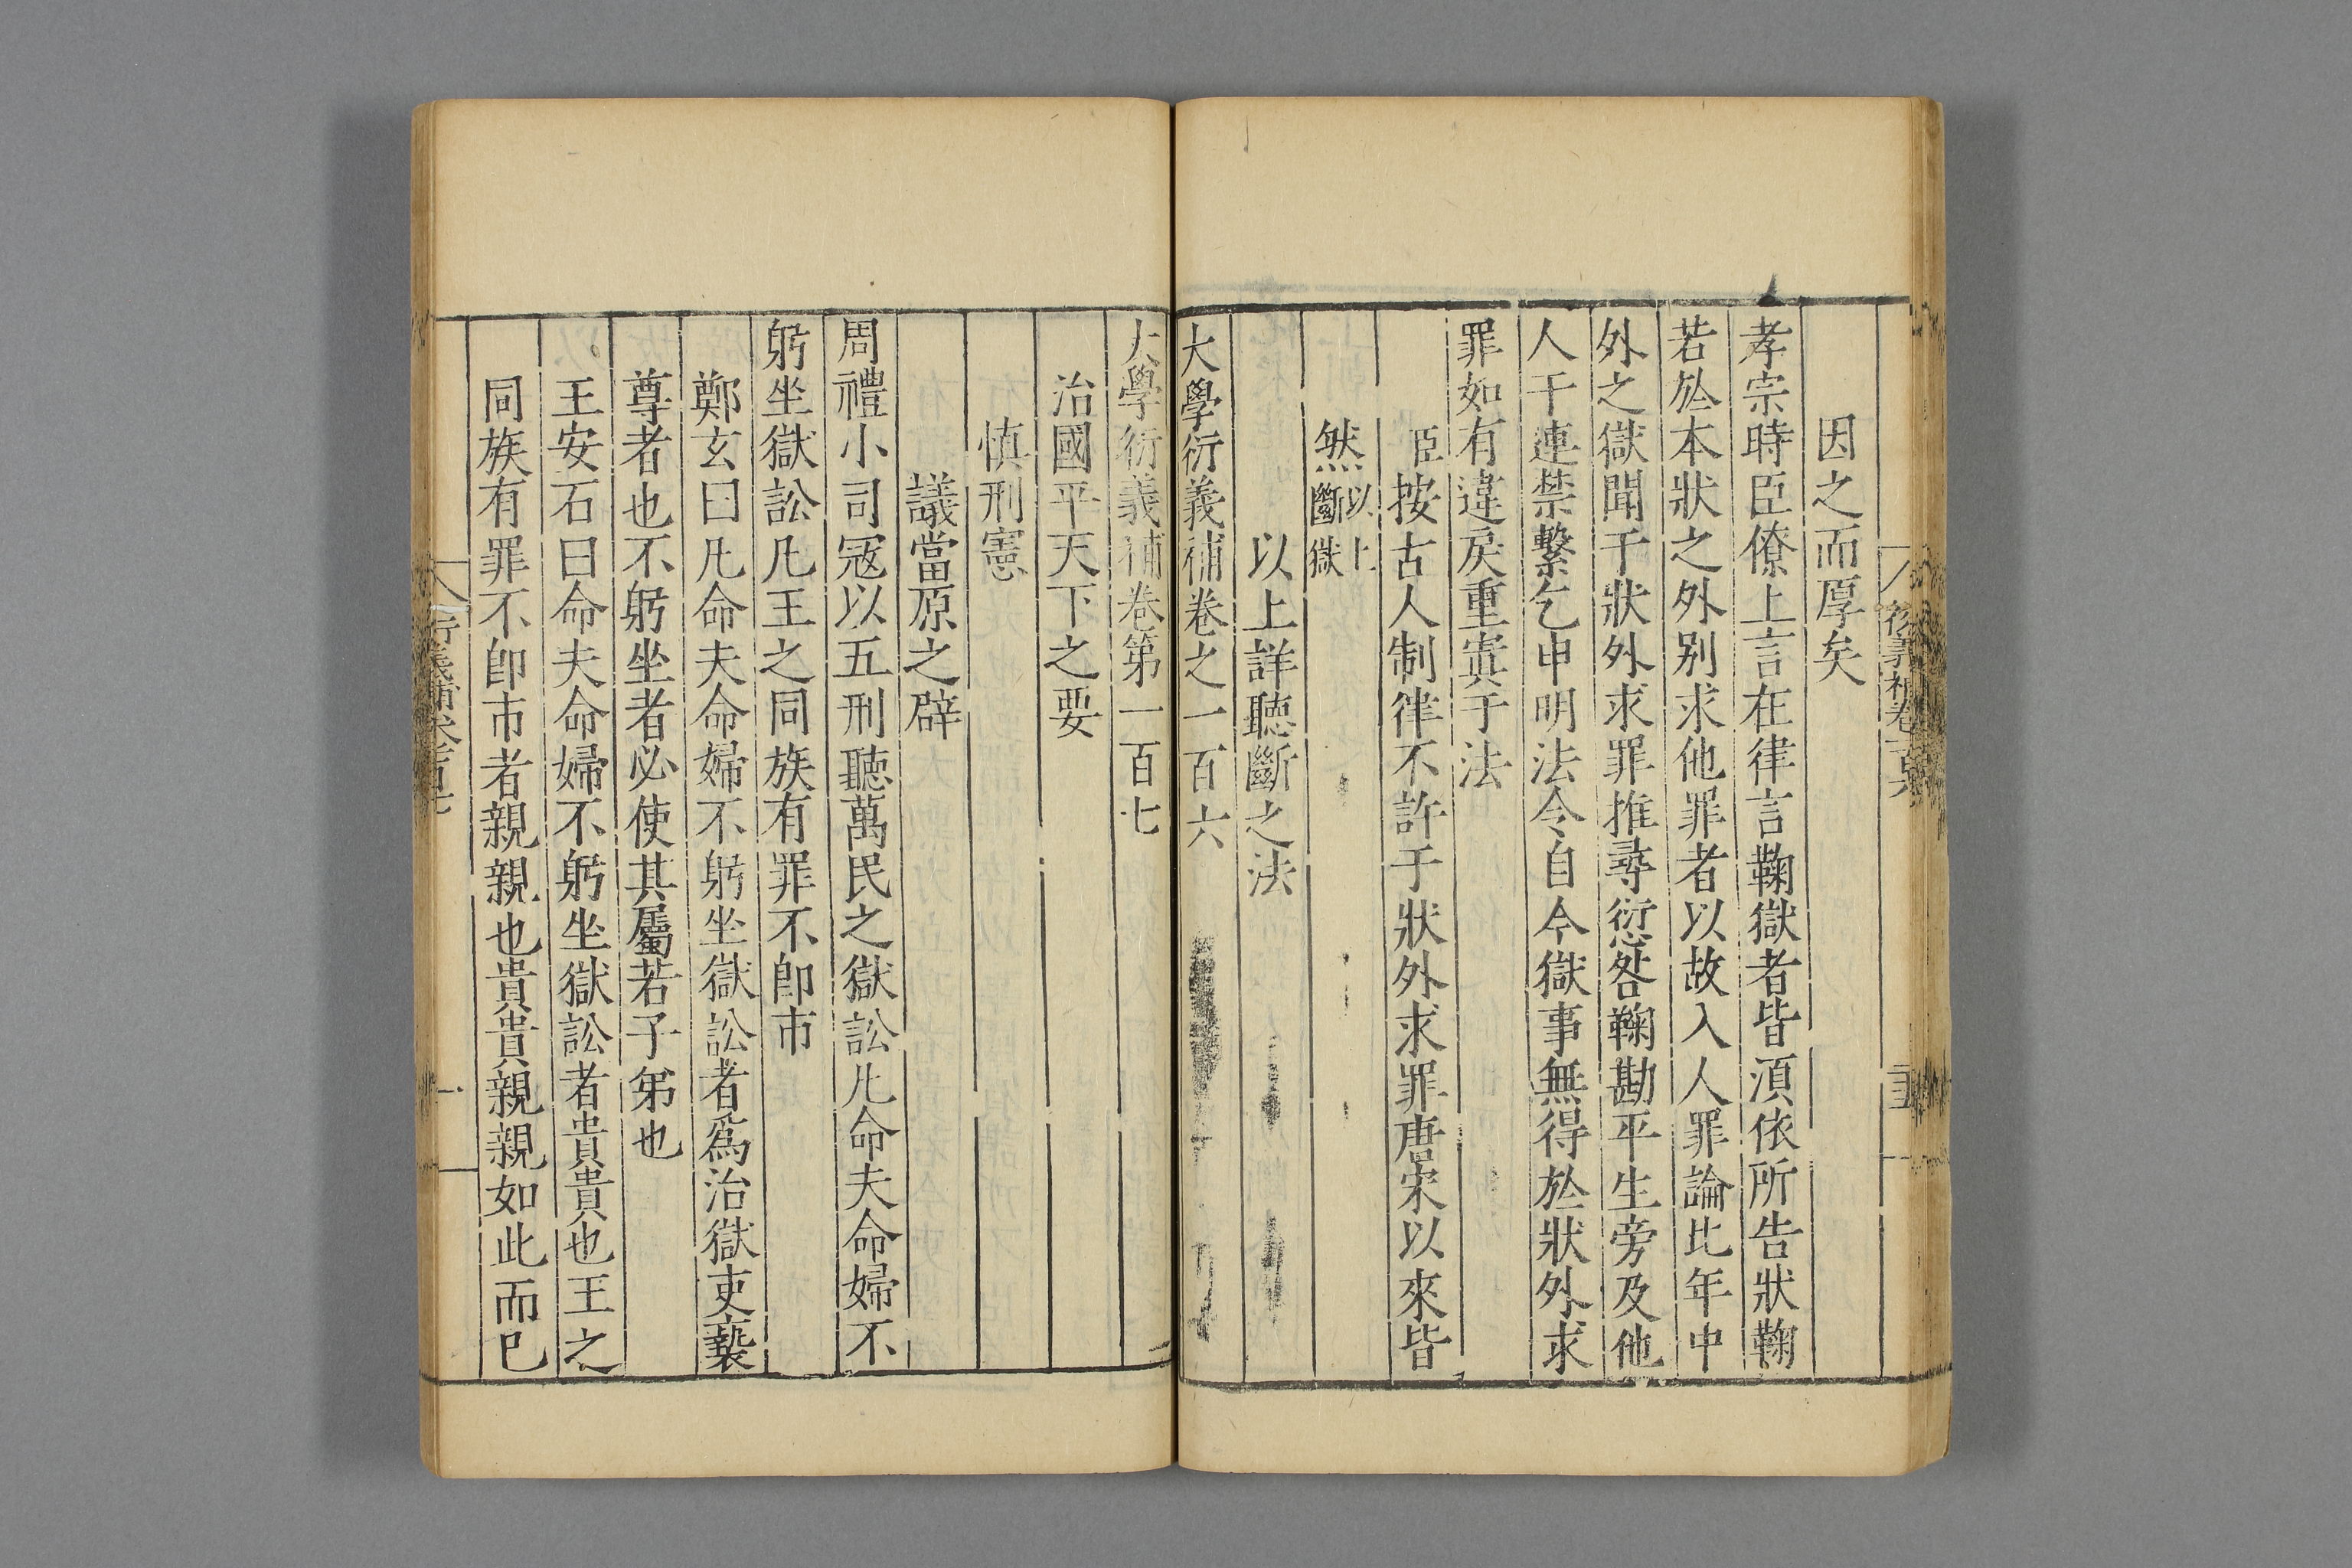 因之而厚矣
孝宗時臣僚上言在律言鞠獄者皆湏依所告狀鞠
若於本狀之外别求他罪者以故入人罪論比年中
外之獄聞于狀外求罪推尋愆咎鞠勘平生旁及他
人干連禁繫乞申明法令自今獄事無得於狀外求
罪如有違戾重寘于法
臣按古人制律不許于狀外求罪唐宋以來皆
然以上斷獄
以上詳聽斷之法
大學衍義補卷之一百六
大學衍義補卷第一百七
治國平天下之要
慎刑憲
議當原之辟
周禮小司冦以五刑聽萬民之獄訟凡命夫命婦不
躬坐獄訟凡王之同族有罪不卽市
鄭玄曰凡命夫命婦不躬坐獄訟者爲治獄吏䙝
尊者也不躬坐者必使其屬若子弟也
王安石曰命夫命婦不躬坐獄訟者貴貴也王之
同族有罪不卽市者親親也貴貴親親如此而已